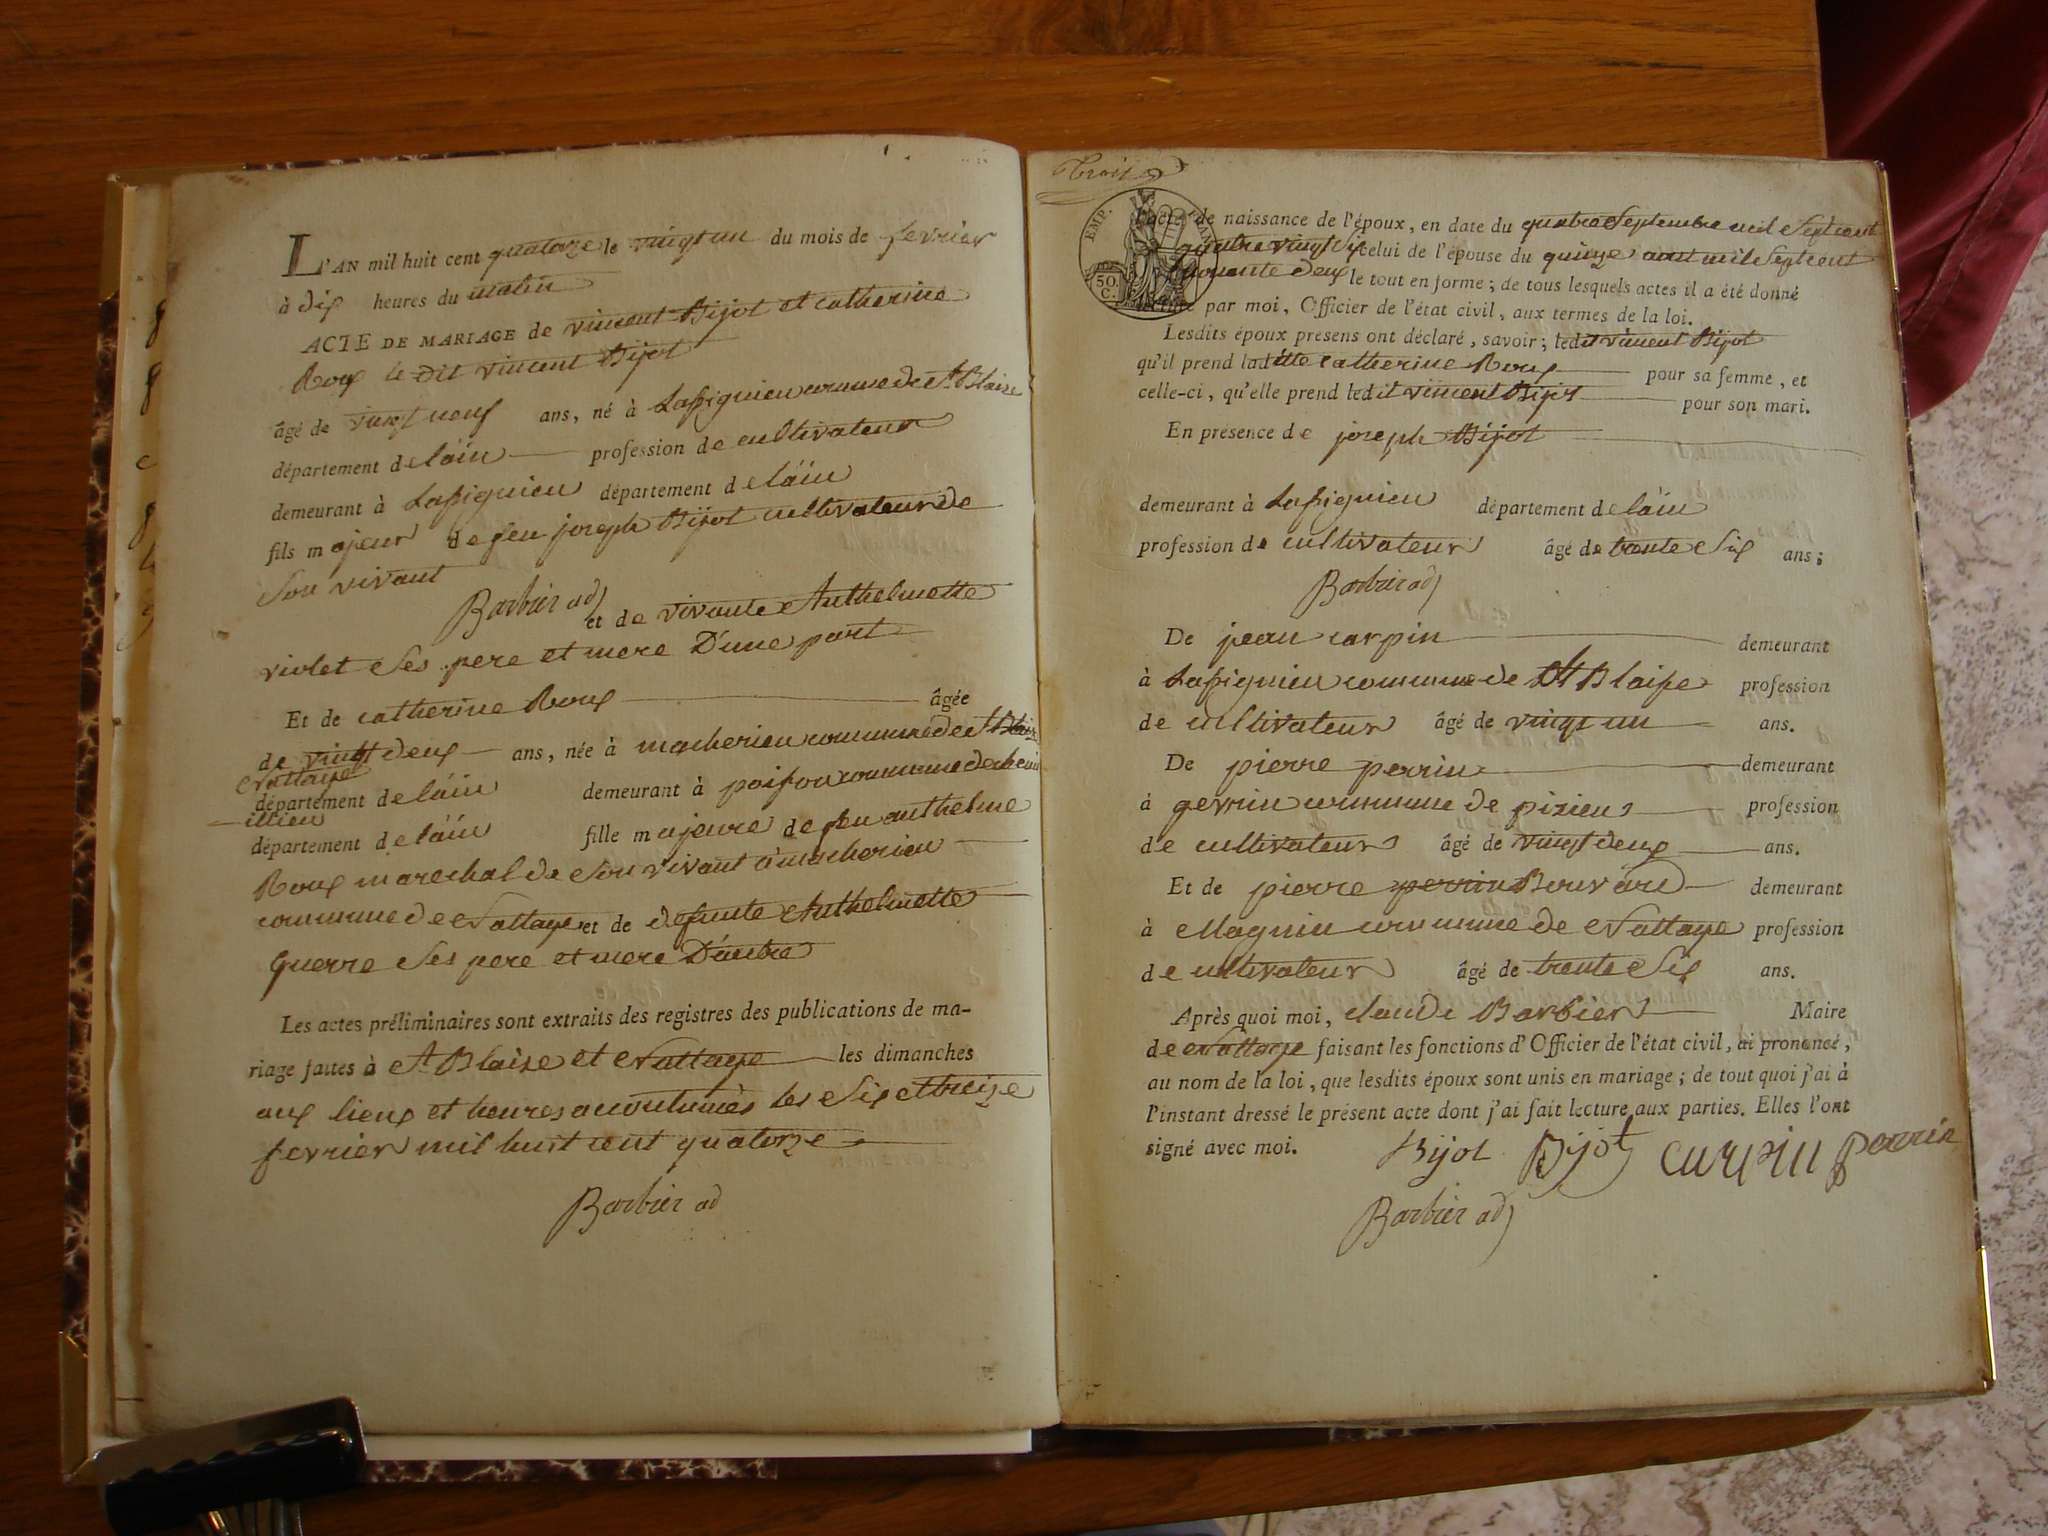 L'AN mil huit cent quatorze le vingt un du mois de fevrier
à dix heures du matin
ACTE DE MARIAGE de vincent Bijot et catherine
Roux le dit vincent Bijot
âgé de vingt neuf ans, né à Lassignieu commune de St Blaise
département de láin profession de cultivateur
demeurant à Lassignieu département de láin
fils majeur de feu joseph Bijot cultivateur de
Son vivant
Barbier adj
et de vivante Anthelmette
violet Ses pere et mere D'une part
Et de catherine Roux âgée
de vingt deux ans, née à macherieu commune de St Blaise
Nattage
département de láin demeurant à poisson commune de cheini
illieu
département de láin fille majeure de feu anthelme
Roux marechal de Son vivant à macherieu
commune de Nattage et de defunte Anthelmette
Guerre Ses pere et mere D'autre
Les actes préliminaires sont extraits des registres des publications de ma-
riage faites à St Blaise et Nattage les dimanches
aux lieux et heures acoutumés les Six et treize
fevrier mil huit cent quatorze
Barbier ad
trois
EMP.
50
C.
l'acte de naissance de l'époux, en date du quatre Septembre mil Sept cent
quatre vingt Six celui de l'épouse du quinze aout mil Sept cent
deux le tout en forme ; de tous lesquels actes il a été donné
lecture par moi, Officier de l'état civil, aux termes de la loi.
Lesdits époux présens ont déclaré, savoir ; ledit vincent Bijot
qu'il prend ladite catherine Roux pour sa femme, et
celle-ci, qu'elle prend ledit vincent Bijot pour son mari.
En présence de joseph Bijot
demeurant à Lassignieu département de láin
profession de cultivateur âgé de trente Six ans ;
Barbier adj
De jean carpin demeurant
à Lassignieu commune de St Blaise profession
de cultivateur âgé de vingt un ans.
De pierre perrin demeurant
à gevrin commune de pizieu profession
de cultivateur âgé de vingt deux ans.
Et de pierre perrin Bouvard demeurant
à Magnin commune de Nattage profession
de cultivateur âgé de trente Six ans.
Après quoi moi, claude Barbier Maire
de Nattage faisant les fonctions d'Officier de l'état civil, ai prononcé,
au nom de la loi, que lesdits époux sont unis en mariage ; de tout quoi j'ai à
l'instant dressé le présent acte dont j'ai fait lecture aux parties. Elles l'ont
signé avec moi. Bijot Bijot carpin perrin
Barbier adj